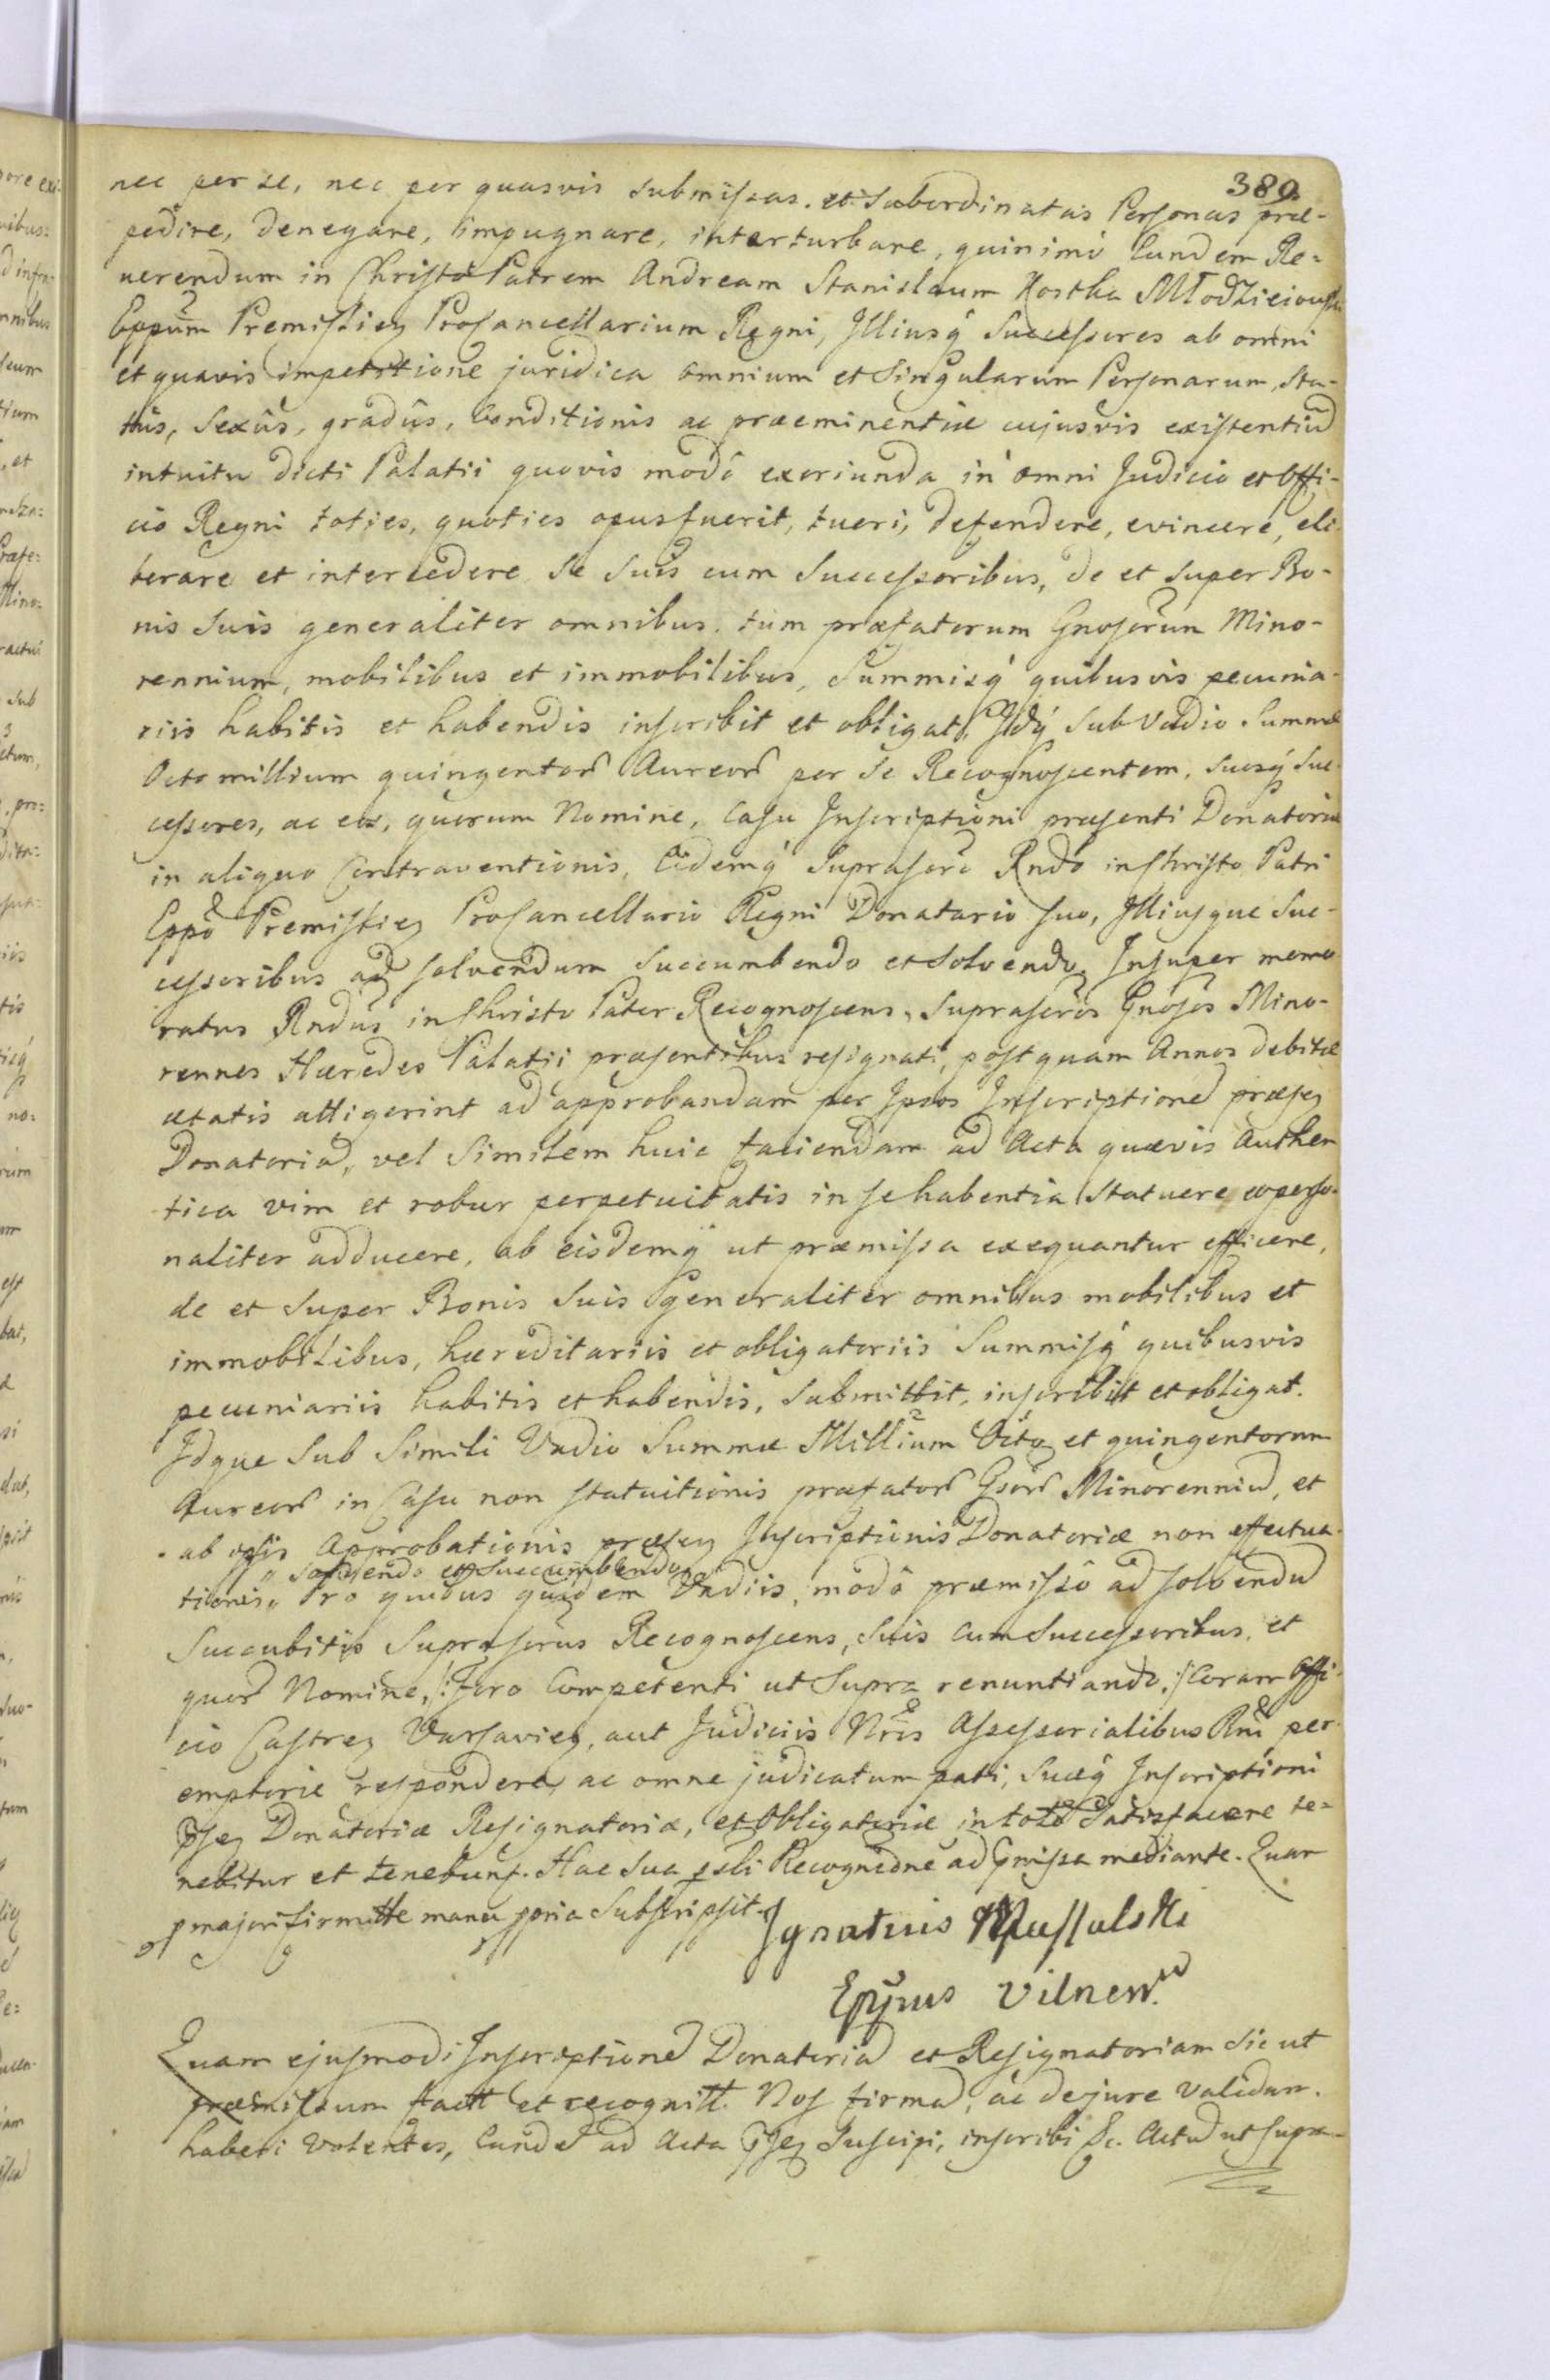 389.
nec per se, nec per quasvis submissas. et Subordinatas Personas præ-
pedire, denegare, impugnare, interturbare, quinimò Eundem Re-
verendum in Christo Patrem Andream Stanislaum Kostka Młodzieiowski
Eppum Premislien Procancellarium Regni, Illiusq́ Successores ab omni
et quavis impetitione juridica omnium et Singularum Personarum, Sta-
tûs, Sexûs, gradûs, Conditionis ac præeminentiæ cujusvis existentiũ
intuitu dicti Palatii quovis modô exoriunda in omni Judicio et Offi-
cio Regni toties, quoties opus fuerit, tueri, defendere, evincere, eli-
berare et intercedere se suis cum Successoribus, de et super Bo-
nis Suis generaliter omnibus. tùm præfatorum Gnosorum Mino-
rennium, mobilibus et immobilibus, Summisq́ quibusvis pecunia-
riis habitis et habendis inscribit et obligat, Idq́ sub Vadio Summæ
Octo millium quingentor Aureor per se Recognoscentem, suosq́ Suc-
cessores, ac eos, quorum Nomine, Casu Inscriptioni præsenti Donatoriæ
in aliquo Contraventionis, Eidemq́ Suprascrõ Rndõ in Christo Patri
Eppõ Premislien Procancellario Regni Donatario suo, Illiusque Suc-
cessoribus ad solvendum succumbendo et solvendo. Insuper memo-
ratus Rndus in Christo Pater Recognoscens, Suprascros Gnosos Mino-
rennes Hæredes Palatii præsentibus resignati, postquam Annos debitæ
ætatis attigerint ad approbandam per Ipsos Inscriptionẽ præsen
Donatoriã, vel Similem huic faciendam ad Acta quævis Authen
tica vim et robur perpetuitatis in se habentia Statuere et perso-
naliter adducere, ab eisdemq́ ut præmissa exequantur efficere,
de et super Bonis Suis generaliter omnibus mobilibus et
immobilibus, hæreditariis et obligatoriis Summisq́ quibusvis
pecuniariis habitis et habendis, Submittit, inscribit et obligat.
Idque Sub Simili Vadio Summæ Millium Octo et quingentorum
Aureor in Casu non statuitionis præfator Gsor Minorenniũ, et
ab ipsis Approbationis præsen Inscriptionis Donatoriæ non effectua-
" solvendo et succumbendo
tionis " Pro quibus quidem Vadiis, modô præmissô ad solvendũ
Succubitis Suprascrus Recognoscens, Suis cum Successoribus, et
quor Nomine, /: Foro Competenti ut Supra renuntiando, :/ Coram Offi-
cio Castren Varsavien, aut Judiciis Nris Assessorialibus Rni per-
emptorie respondere, ac omne judicatum pati, Suæq́ Inscriptioni
Psen Donatoriæ Resignatoriæ, et Obligatoriæ in toto Satisfacere te-
nebitur et tenebunt. Hac Sua psli Recognedne ad Pmissa mediante. Quam
p majori firmitte manu ppria Subscripsit.
Ignatius Massalski
Eppus Vilnen.
Quam ejusmodi Inscriptionẽ Donatoriã et Resignatoriam sic ut
præmissum factt et recognitt. Nos firmã, ac de jure validam.
haberi volentes, Eandẽ ad Acta Psen Suscipi, inscribi &c. Actũ ut supra